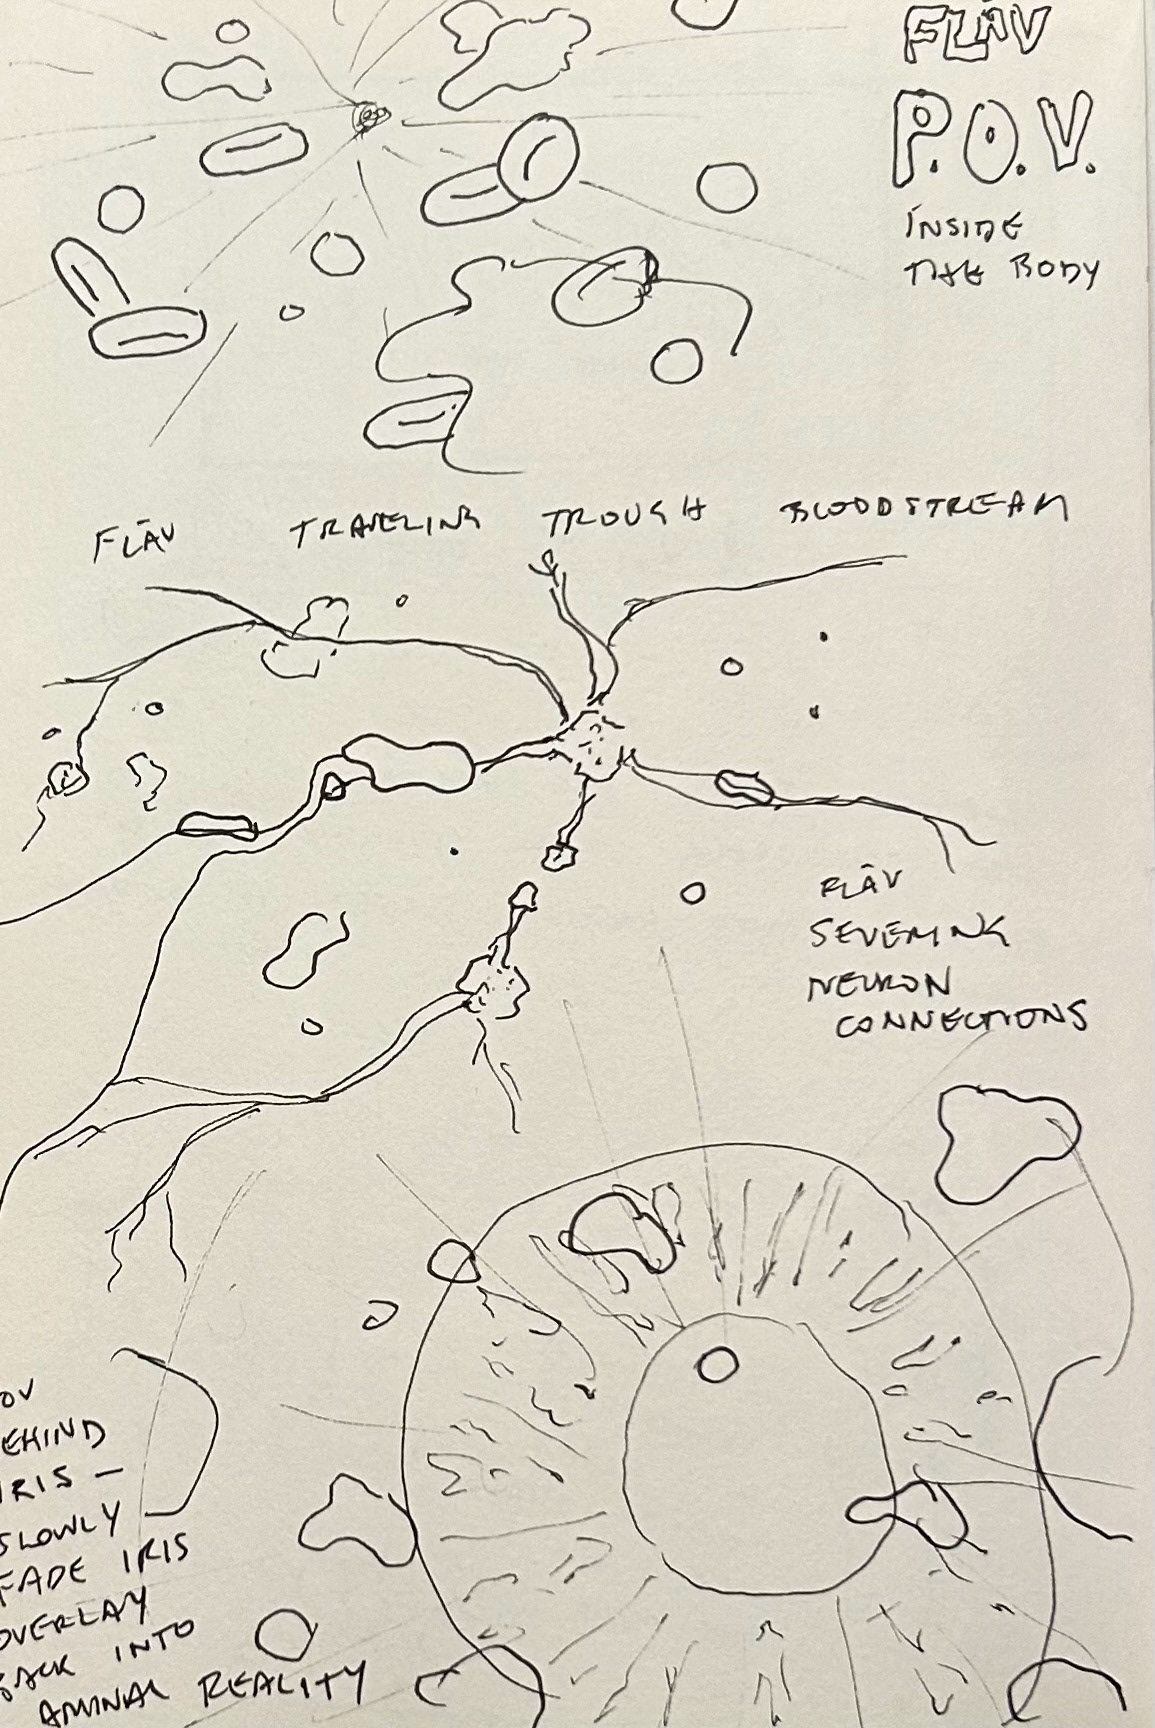 FLĀV
P.O.V.
INSIDE
THE BODY
FLĀV TRAVELING TROUGH BLOODSTREAM
FLĀV
SEVERING
NEURON
CONNECTIONS
OV
EHIND
IRIS —
SLOWLY
FADE IRIS
OVERLAY
BACK INTO
AMINAL REALITY